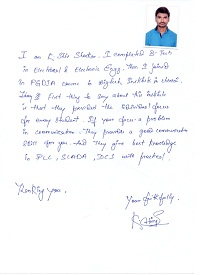 I am K. Shiv Shankar. I completed B-Tech
in Electrical & Electronic Engg. Then I joined
in PGDIA course in institute in chennai.
thing I first to say about this institute
is that they provided the individual focus
for every student. If your focus a problem
in communication. They provides a good communication
skill for you. And they give best knowledge
in PLC, SCADA, DCS with practical.
Thanking you,
Your faithfully,